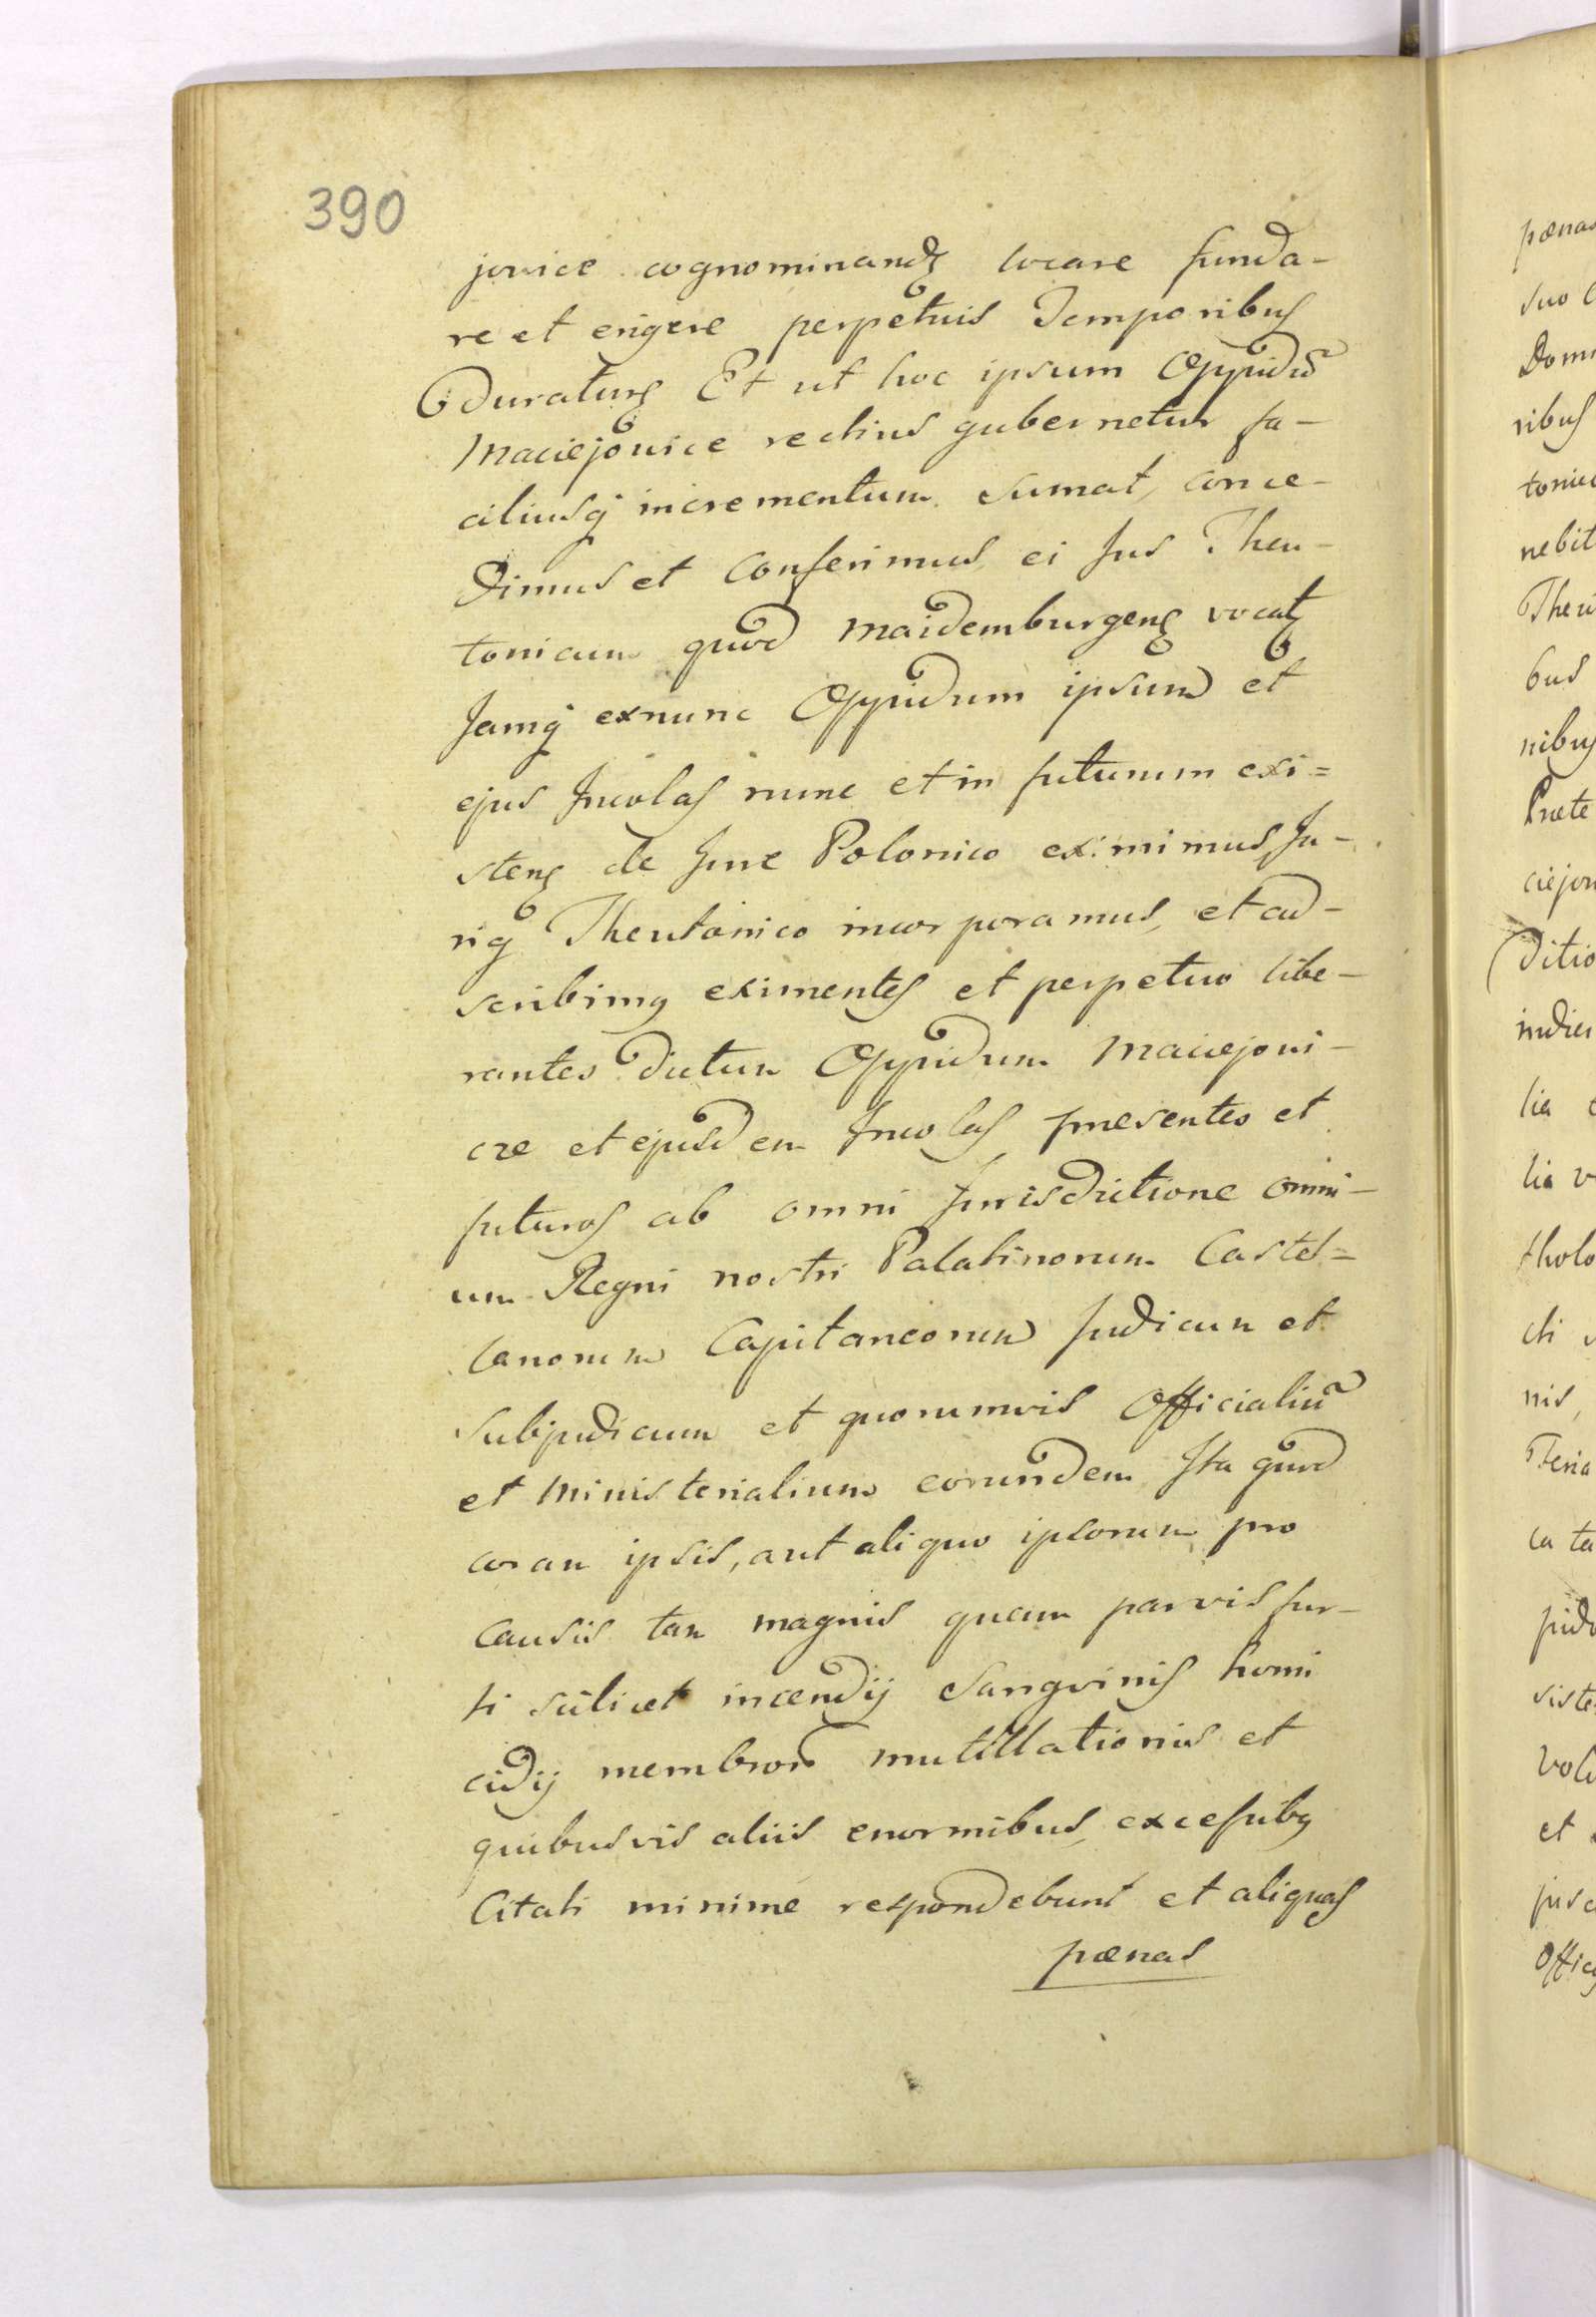 390
jovice cognominandꝫ locare funda-
re et erigere perpetuis Temporibus
duraturꝫ Et ut hoc ipsum Oppidū
Maciejovice rectius gubernetur fa-
ciliusq́ incrementum sumat, conce-
dimus et Conferimus ei Jus Theu-
tonicum quod Maidemburgenꝫ vocatꝫ
Jamq́ exnunc Oppidum ipsum et
ejus Incolas nunc et in futurum exi=
stenꝫ de Jure Polonico eximimus, Ju-
riq́ Theutonico incorporamus, et ad-
scribimꝯ eximentes et perpetuo libe-
rantes dictum Oppidum Maciejovi-
cze et ejusdem Incolas presentes et
futuros ab omni Jurisdictione omni-
um Regni nostri Palatinorum Castel=
lanorum Capitaneorum Judicum et
Subjudicum et quorumvis Officialiū
et Ministerialium eorundem Ita quod
coram ipsis, aut aliquo ipsorum pro
Causis tam magnis quam parvis fur-
ti scilicet incendij Sangvinis homi
cidij membror̄ mutillationis et
quibusvis aliis enormibus, excessibꝯ
Citati minime respondebunt et aliquas
pænas
pænas
suo
Dom
ribus
tonic
nebit
Theu
bus
nibus
Præte
ciejov
ditio
indic
lia
lia v
tholo
cti
nis,
Teria
ca ta
pido
siste
Volu
et
jusd
Offic